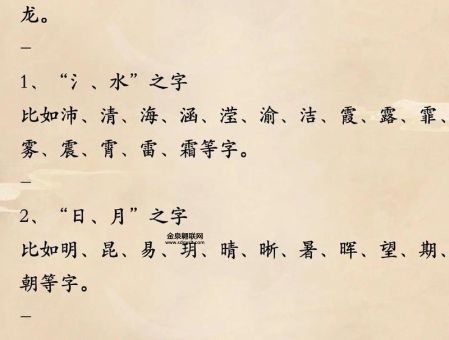 龙。
–
1、“氵、水”之字
比如沛、清、海、涵、滢、渝、洁、霞、露、霏、
雾、震、霄、雷、霜等字。
–
2、“日、月”之字
金泉翻联网
比如明、昆、易、玥、晴、晰、暑、晖、望、期、
朝等字。
–